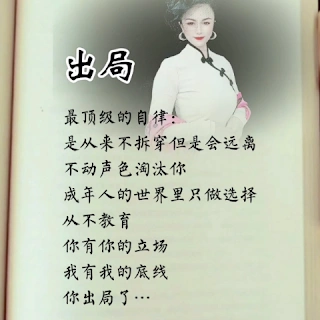 出局
最顶级的自律：
是从来不拆穿但是会远离
不动声色淘汰你
成年人的世界里只做选择
从不教育
你有你的立场
我有我的底线
你出局了…